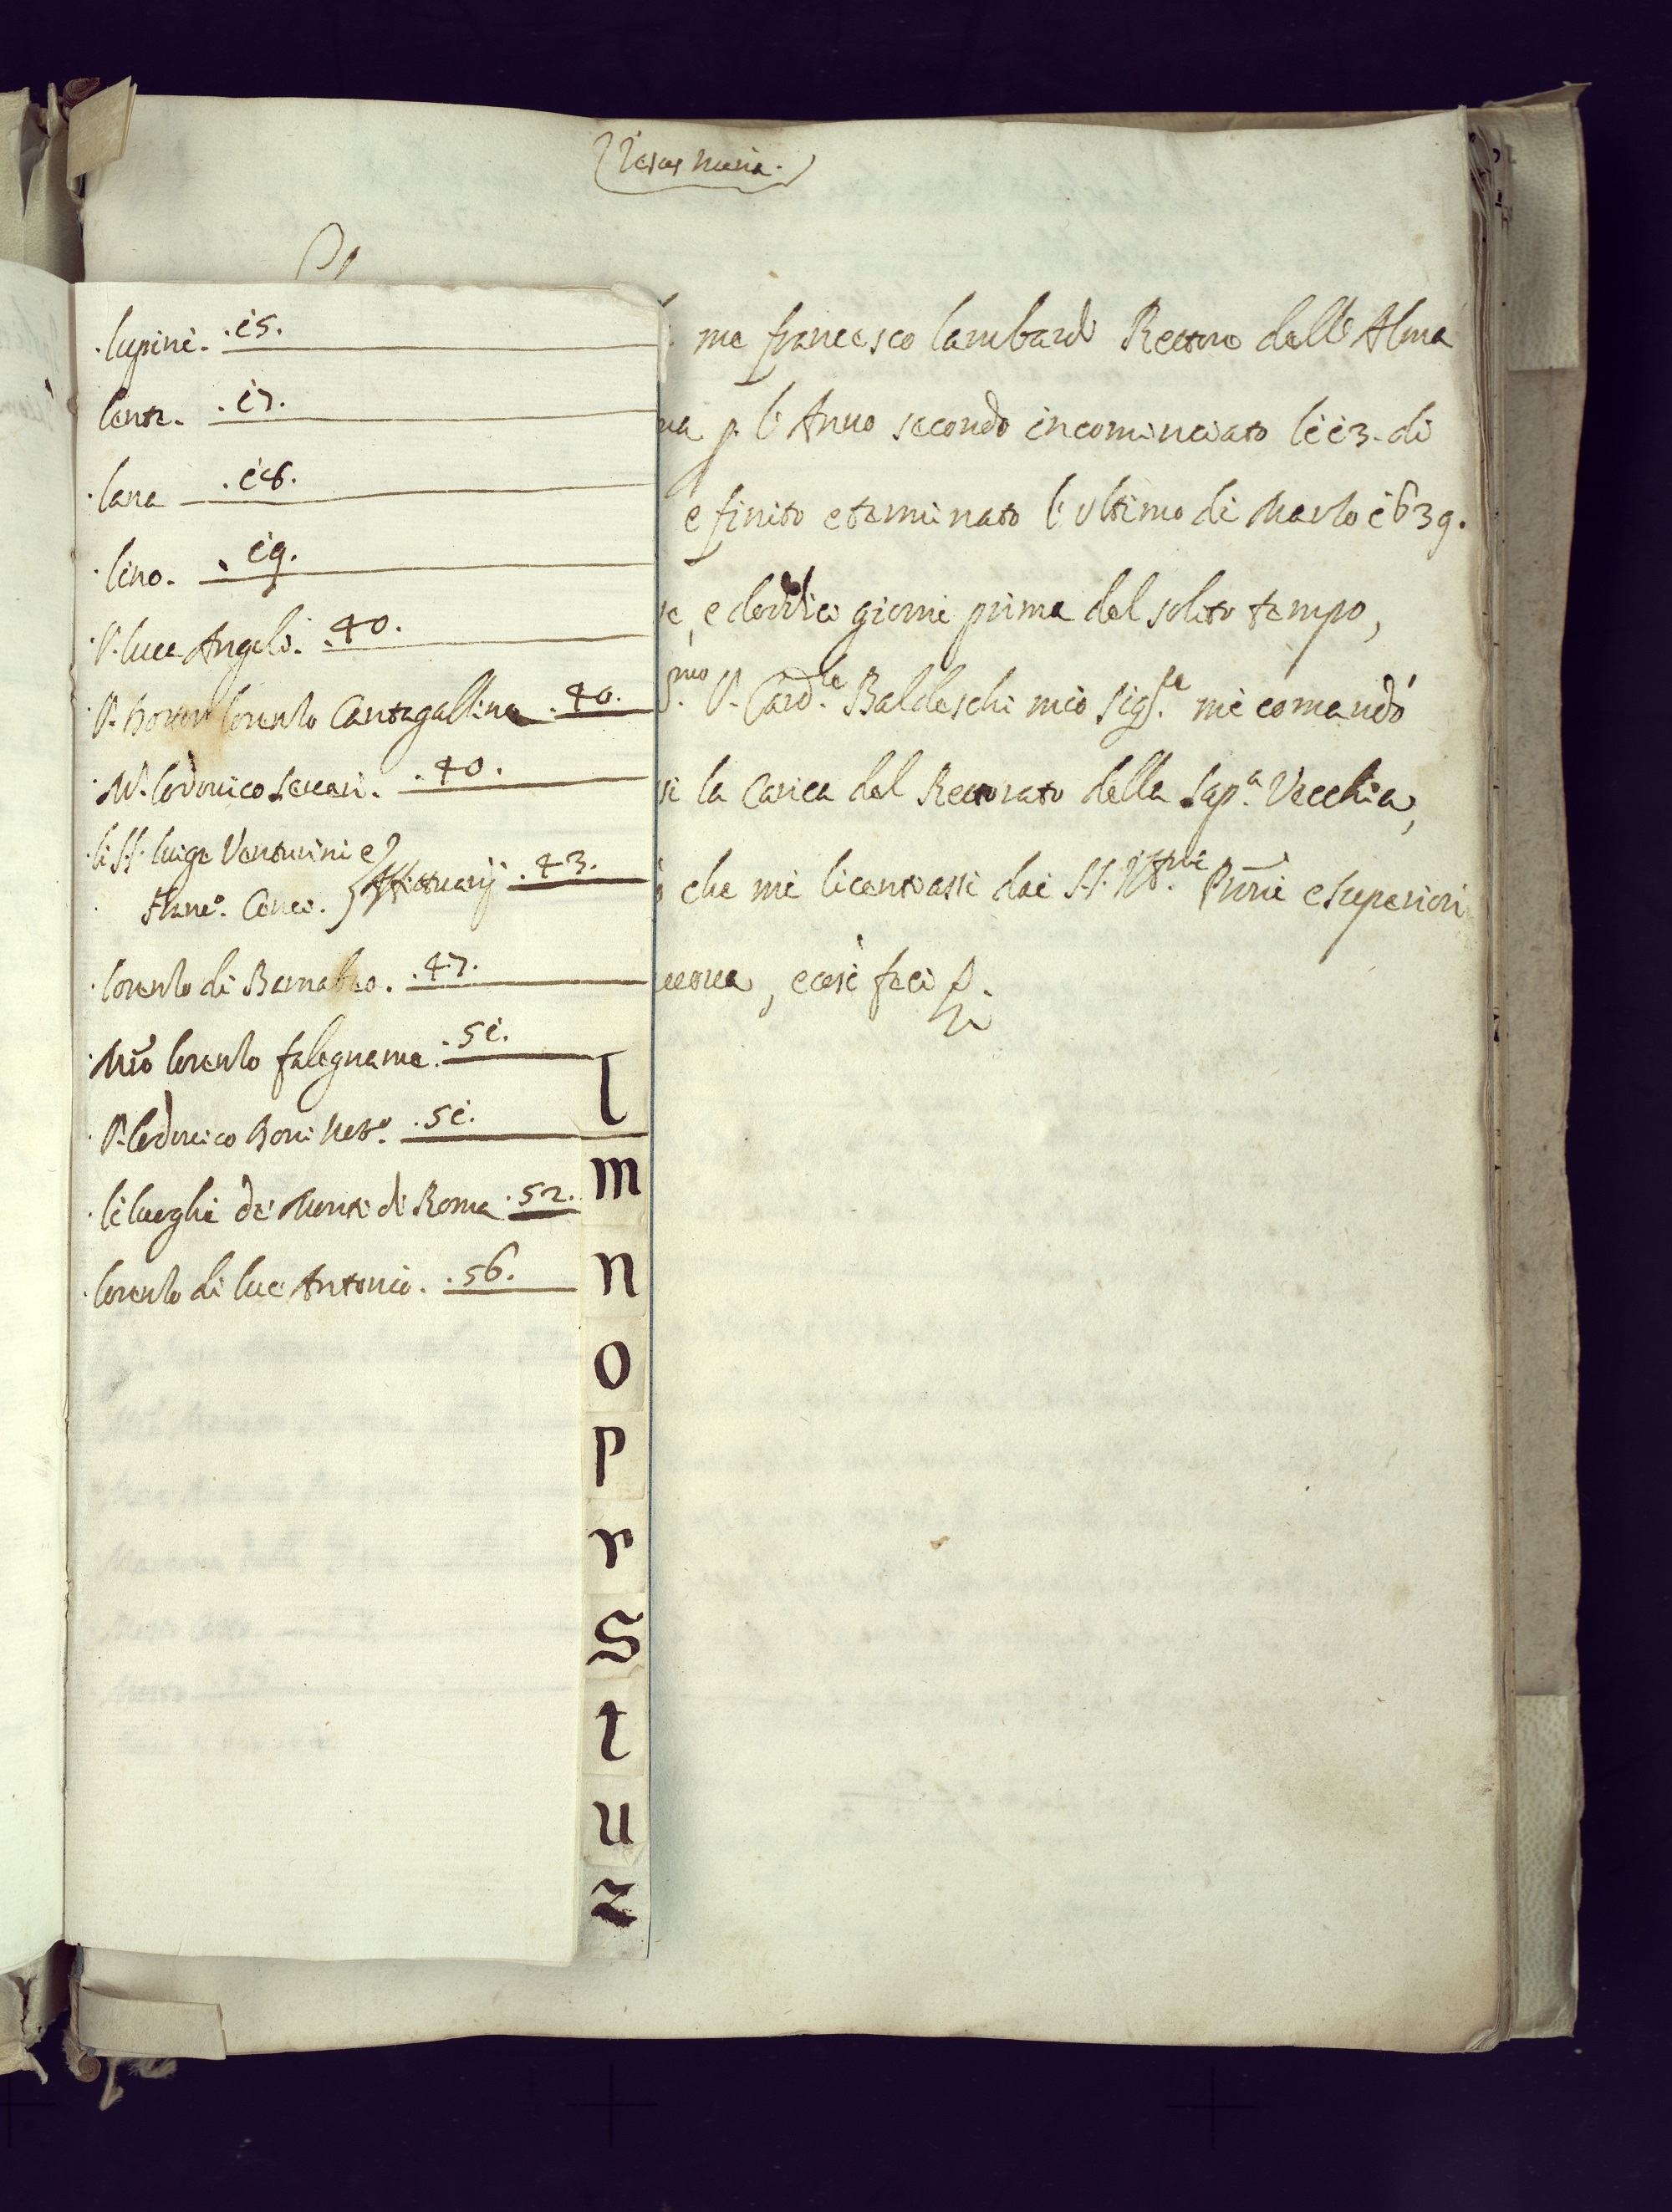 Iesus Maria.
.lupini. .i5.
.lente. .i7.
.lana .i8.
.lino. .i9.
.S. luca Angelo. .40.
lorenzo Cantagallina .40.
.Mr. lodovico .40.
.li SS. luigi Venturini e
Franco. Affittuarij .43.
.lorenzo di Barnabeo. .47.
.Mro lorenzo falegname. .5i.
.S. lodovico Boni .5i.
.li luoghi de Monti di Roma .52.
.lorenzo di luc Antonio. .56.
l
m
n
o
p
r
s
t
u
z
me francesco lambardi Rettore dell' Alma
p. l'Anno secondo incominciato li i3. di
e finito e terminato l'ultimo di Marzo i639.
e dodici giorni prima del solito tempo,
S. Card.le Baldeschi mio Sig.re mi comandò
la Carica del Rettorato della Sap.a Vecchia,
che mi licentiassi dai SS. Ill.mi Prōri e superiori
, e così feci